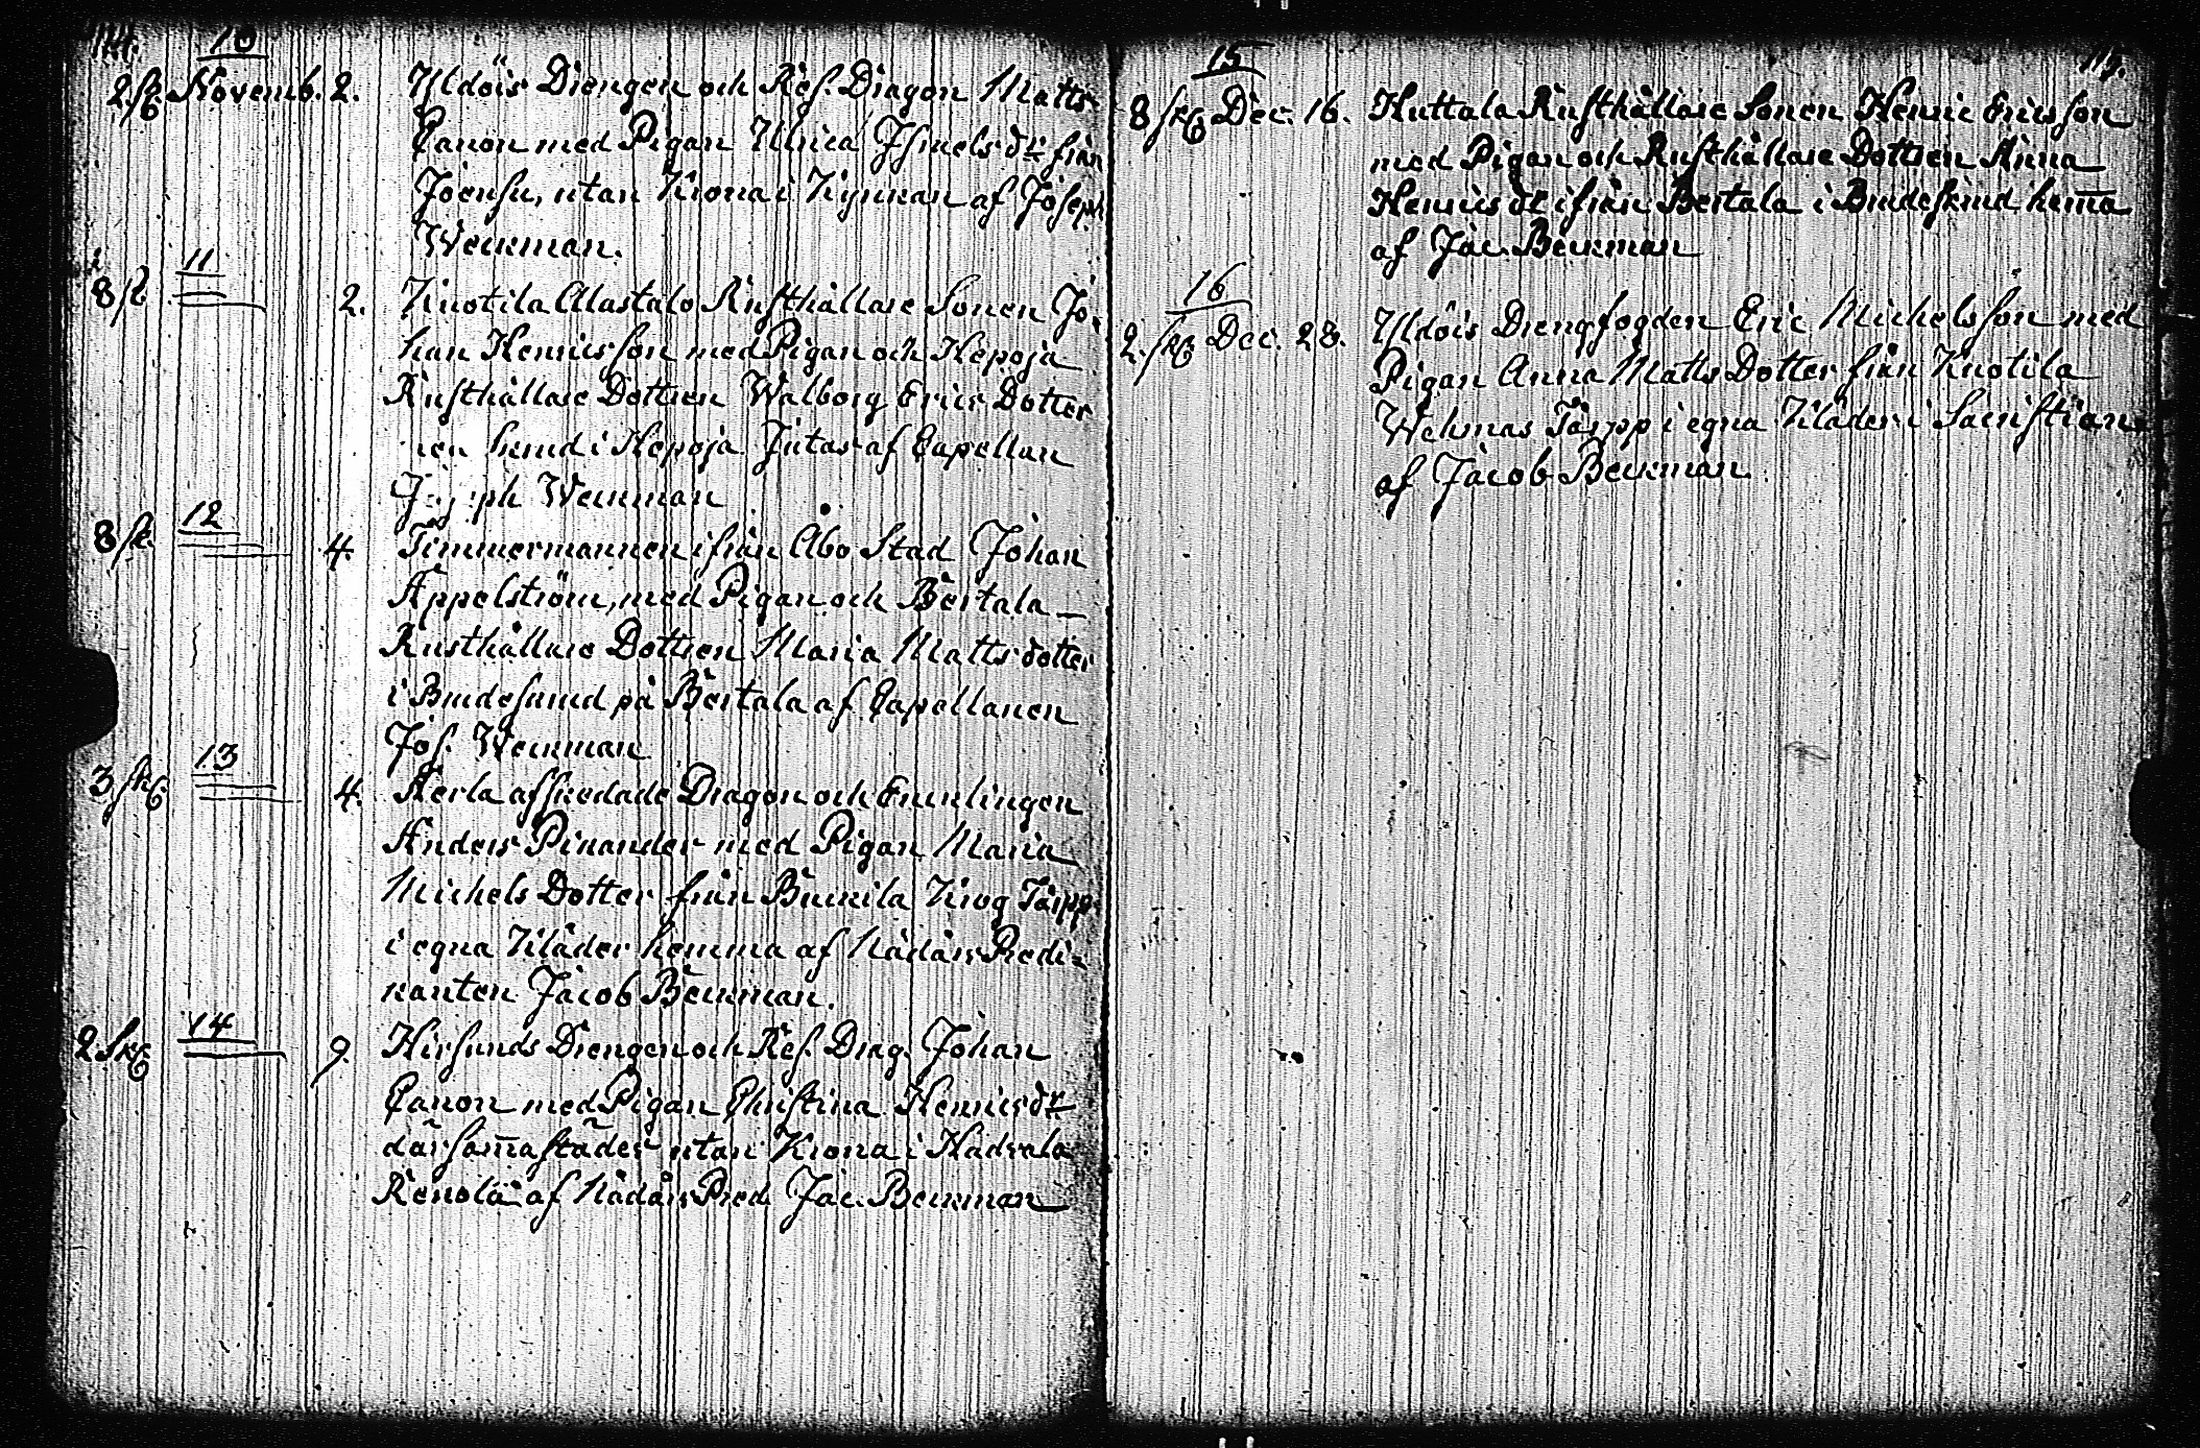 114.
10
2 sk. Novemb. 2. Yldöis Drengen och Res. Dragon Matts
Canon med Pigan Ulrica Ismels dr. från
Joensu, utan Krona i Kynnan af Joseph
Weckman.
11
8 sk 2. Knotila Alastalo Rusthållare Sonen Jo-
han Henricsson med Pigan och Hepoja
Rusthållare Dottren Walborg Erics Dotter
i Hepoja af Capellan
Weckman
12
8 sk. 4. Timmermannen ifrån Åbo Stad Johan
Appelström, med Pigan och Bertala
Rusthållare Dottren Maria Matts dotter
i Brudeskrud på Bertala af Capellanen
Jos. Weckman
13
3 sk 4. Kerla afskedade Dragon och Enklingen
Anders Pinander med Pigan Maria
Michels Dotter från Krog Tårpp
i egna Kläder hemma af Nådårs Predi-
kanten Jacob Beckman.
14
2 Sk 9. Hirsunds Drengen och Res. Drag. Johan
Canon med Pigan Christina Henrics dr
därsam̅astädes utan Krona i
af Nådårs Pred. Jac. Beckman
115.
15
8 sk Dec. 16. Huttala Rusthållare Sonen Henric Ericsson
med Pigan och Rusthållare Dottren Anna
Henrics dr ifrån Bertala i Brudeskrud hem̅a
af Jac. Beckman
16
2. sk Dec. 28. Yldöis Drengfogden Eric Michelsson med
Pigan Anna Matts Dotter från Knotila
Wehmas Tårpp i egna Kläder i Sacristian
af Jacob Beckman.